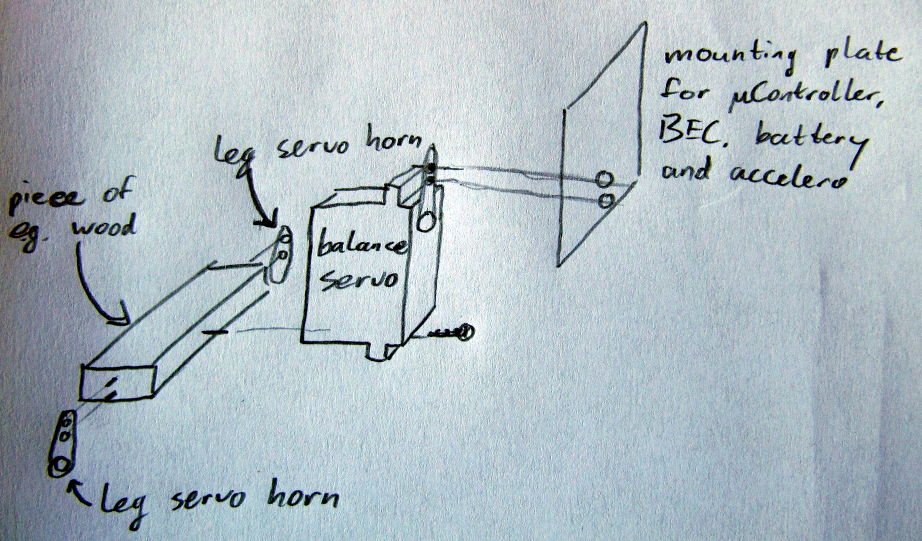 mounting plate
for μController,
BEC, battery
and accelero
leg servo horn
piece of
eg. wood
balance
servo
leg servo horn